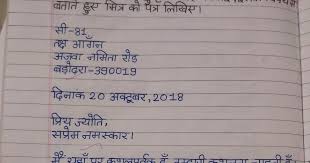 बताते हुस मित्र को पत्र लिखिए।
सी-81,
आँगन
अजवा नमिता रोड
बड़ोदरा-390019
दिनांक 20 अक्टूबर, 2018
प्रिय ज्योति,
सप्रेम नमस्कार।
मैं यहाँ पर कुशलपूर्वक हूँ